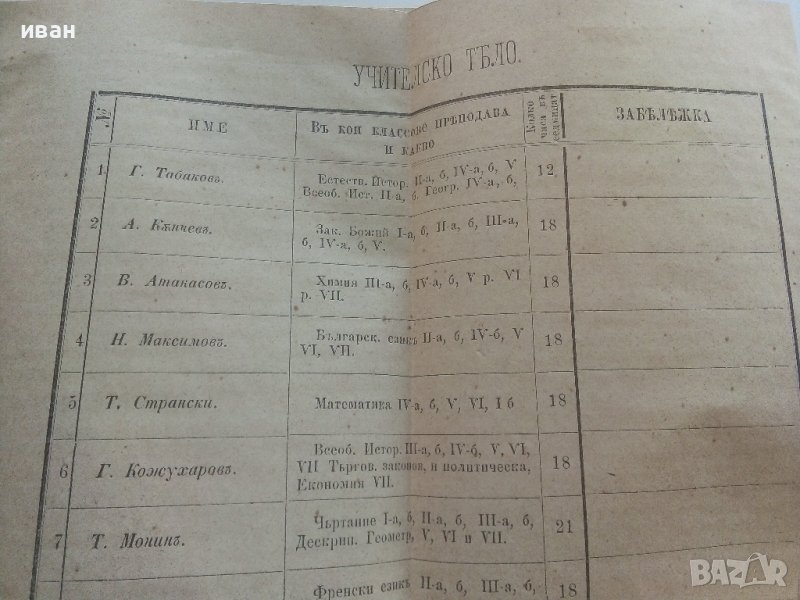 иван
УЧИТЕЛСКО ТѢЛО.
№
ИМЕ
ВЪ КОИ КЛАССОВЕ ПРѢПОДАВА
И КАКВО
Колко
часа въ
седмицат
ЗАБѢЛѢЖКА
1 Г. Табаковъ. Естеств. Истор. II-а, б, IV-а, б, V 12
Всеоб. Ист. II-а, б, Геогр. IV-а, б,
2 А. Кѫнчевъ. Зак. Божий I-а, б, II-а, б, III-а, 18
б, IV-а, б, V.
3 В. Атанасовъ. Химия III-а, б, IV-а, б, V р. VI 18
р. VII.
4 Н. Максимовъ. Българск. езикъ II-а, б, IV-б, V 18
VI, VII.
5 Т. Странски. Математика IV-а, б, V, VI, I б 18
6 Г. Кожухаровъ. Всеоб. Истор. III-а, б, IV-б, V, VI, 18
VII Търгов. законов. и политическа,
Економия VII.
7 Т. Монинъ. Чъртание I-а, б, II-а, б, III-а, б, 21
Дескрип. Геометр, V, VI и VII.
Френски езикъ II-а, б, III-а, б, 18
BAZAR
bg